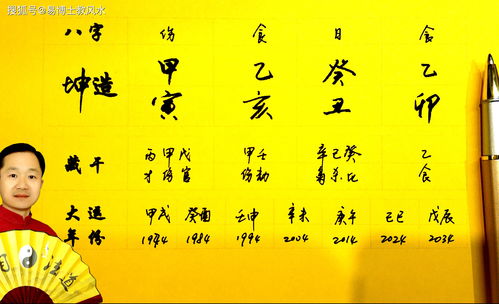 搜狐号@易博士救风水
八字 伤 食 日 食
坤造 甲 乙 癸 乙
寅 亥 丑 卯
藏干 丙甲戊 甲壬 辛己癸 乙
才伤官 伤劫 枭杀比 食
大运 甲戌 癸酉 壬申 辛未 庚午 己巳 戊辰
年份 1974 1984 1994 2004 2014 2024 2034